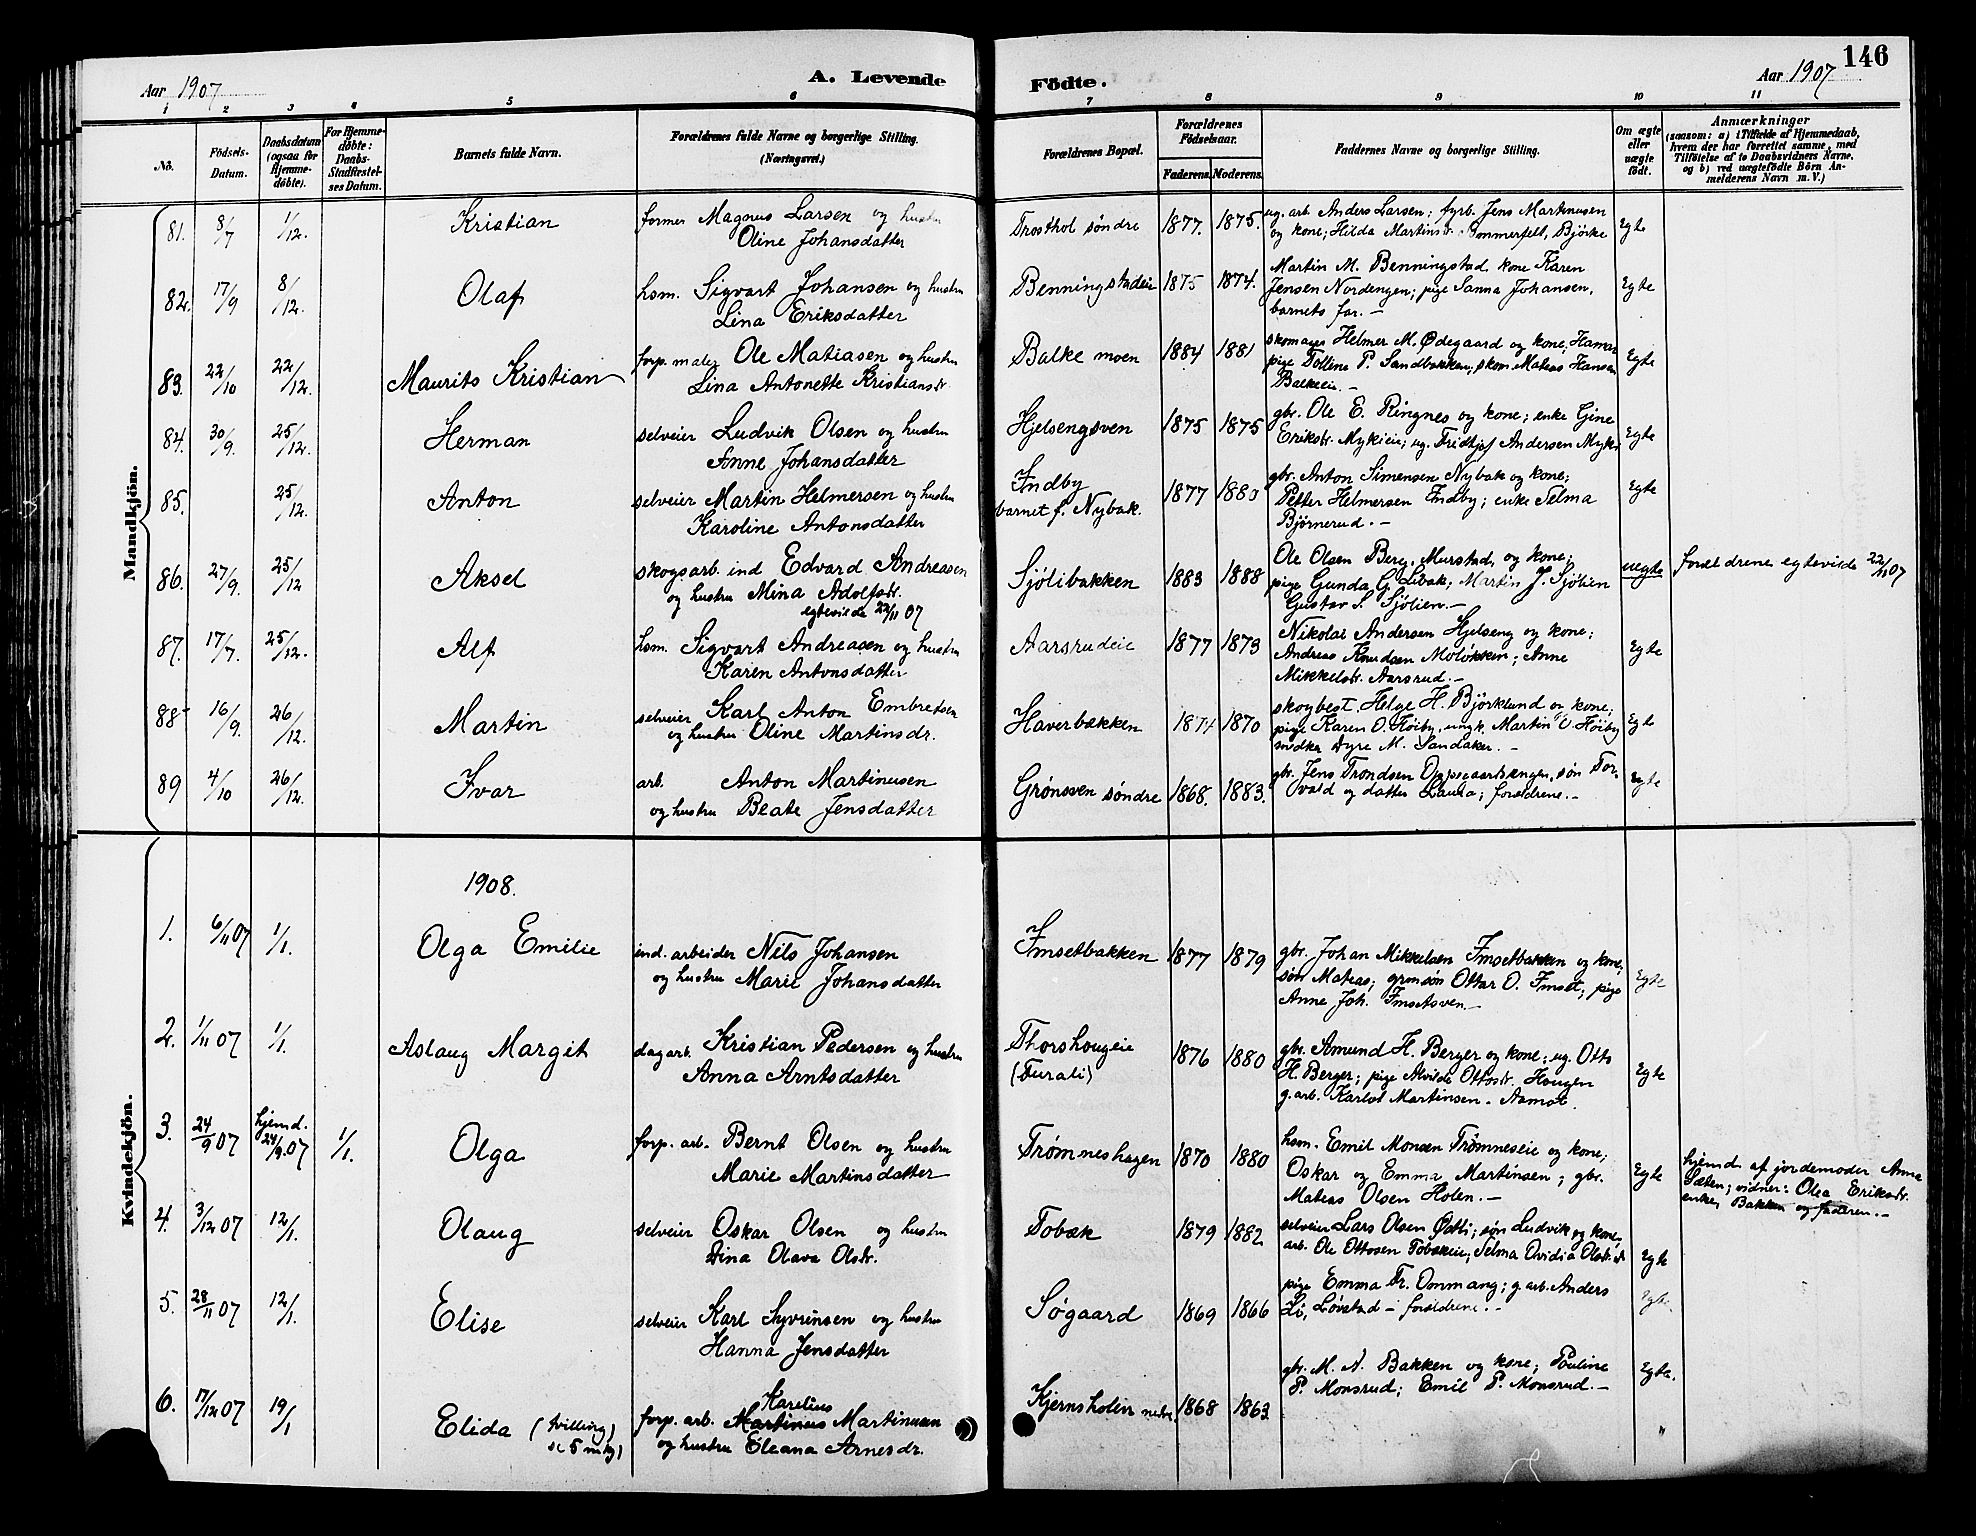 Aar 1907
A. Levende
Födte.
Aar 1907
146
1 2 3 4 5 6 7 8 9 10 11
Nö.
Födsels-
Datum.
Daabsdatum
(ogsaa for
Hjemme-
döbte).
For Hjemme-
döbte:
Daabs-
Stadfæstel-
ses Datum.
Barnets fulde Navn.
Forældrenes fulde Navne og borgerlige Stilling.
(Næringsvei.)
Forældrenes Bopæl.
Forældrenes
Födselsaar.
Faderens. Moderens.
Faddernes Navne og borgerlige Stilling.
Om ægte
eller
uægte
födt.
Anmærkninger
(saasom: a) i Tilfælde af Hjemmedaab,
hvem der har forrettet samme, med
Tilföielse af to Daabsvidners Navne,
og b) ved uægtefödte Börn An-
melderens Navn m. V.)
Mandkjön.
81. 8/7 1/12. Kristian
former Magnus Larsen og hustru
Oline Johansdatter
Trosthol søndre 1877. 1875.
ug. arb. Anders Larsen; fyrb. Jens Martinusen
og kone; Hilda Martinsd. Sommerfelt, Bjørke
Egte
82. 17/9 8/12. Olaf
hsm. Sigvart Johansen og hustru
Lina Eriksdatter
Benningstadeie 1875 1874.
Martin M. Benningstad, kone Karen
Jensen Nordengen; pige Sanna Johansen,
barnets far. —
Egte
83. 22/10 22/12. Maurits Kristian
forp. maler Ole Matiasen og hustru
Lina Antonette Kristiansdr.
Balke moen 1884 1881
skomager Helmer M. Ødegaard og kone; Hamar
pige Tolline P. Sandbakken; skom. Mateas Hansen
Balkeeie. —
Egte
84. 30/9. 25/12. Herman
selveier Ludvik Olsen og hustru
Anne Johansdatter
Hjelsengsven 1875 1875
gbr. Ole E. Ringnes og kone; enke Gine
Eriksdr. Mykieie; ug. Fridtjof Andersen Myki
Egte
85. 25/12. Anton
selveier Martin Helmersen og hustru
Karoline Antonsdatter
Indby
barnet f. Nybak. 1877 1883
gbr. Anton Simensen Nybak og kone;
Petter Helmersen Indby; enke Selma
Bjørnerud. —
Egte
86. 27/9. 25/12 Aksel
skogsarb. ind Edvard Andreasen
og hustru Mina Adolfsdr.
egteviede 22/11 07
Sjölibakken 1883 1888
Ole Olsen Berg, Murstad, og kone;
pige Gunda G. Libak; Martin J. Sjölien
Gustav S. Sjölien. —
uegte
forældrene egteviede 22/11 07
87. 17/7. 25/12. Alf
hsm. Sigvart Andreasen og hustru
Karen Antonsdatter
Aarsrudeie 1877 1873
Nikolai Andersen Hjelseng og kone;
Andreas Knudsen Moløkken; Anne
Mikkelsdr. Aarsrud. —
Egte
88 16/9. 26/12. Martin
selveier Karl Anton Embretsen
og hustru Oline Martinsdr.
Haverbækken 1874 1870
skogbest. Helge H. Björklund og kone;
pige Karen O. Høiby, ungk. Martin O. Høiby
snedker Syre M. Sandaker. —
Egte
89 4/10 26/12. Ivar
arb. Anton Martinusen
og hustru Beate Jensdatter
Grønsven søndre 1868. 1883.
gbr. Jens Trondsen Oppegaardsengen, søn Tor-
vald og datter Laura; forældrene. —
Egte
Kvindekjön.
1908.
1. 6/11 07 1/1. Olga Emilie
ind. arbeider Nils Johansen
og hustru Marie Johansdatter
Imsetbakken 1877 1879
gbr. Johan Mikkelsen Imsetbakken og kone,
søn Mateas; grønsøn Ottar O. Imset; pige
Anne Joh. Imsetsven. —
Egte
2. 1/11 07 1/1. Aslaug Margit
dagarb. Kristian Pedersen og hustru
Anna Arntsdatter
Thorshougeie
(Furali) 1876 1880
gbr. Amund H. Berger og kone; ug. Otto
H. Berger; pige Alvilde Ottosdr. Hougen
g. arb. Karlot Martinsen - Aamot.
Egte
3. 24/9 07 hjemd.
24/9.07 1/1. Olga
forp. arb. Bernt Olsen og hustru
Marie Martinsdatter
Trømneshagen 1870 1880
hsm. Emil Monsen Trømneseie og kone;
Oskar og Emma Martinsen; gbr.
Mateas Olsen Holen. —
Egte
hjemd. af jordemoder Anna
Sæten; vidner: Olea Eriksdr.
enke, Bakken og faderen. —
4. 3/12 07 12/1. Olaug
selveier Oskar Olsen og hustru
Dina Olava Olsdr.
Tobæk 1879 1882
selveier Lars Olsen Østli; søn Ludvik og kone,
arb. Ole Ottosen Tobækeie; Selma Ovidia Olsdr.
Egte
5. 28/11 07 12/1. Elise
selveier Karl Syvrinsen og hustru
Hanna Jensdatter
Søgaard 1869 1866
pige Emma Fr. Ommang; g. arb. Anders
Li, Løvstad - forældrene. -
Egte
6. 17/12 07 19/1 Elida (tvilling)
sc 5 mkg)
Karelius
forp. arb. Martinus Martinusen
og hustru Eleana Arnesdr.
Kjernsholen nedre 1868 1863
gbr. M. A. Bakken og kone; Pauline
P. Monsrud; Emil P. Monsrud. —
Egte.
"